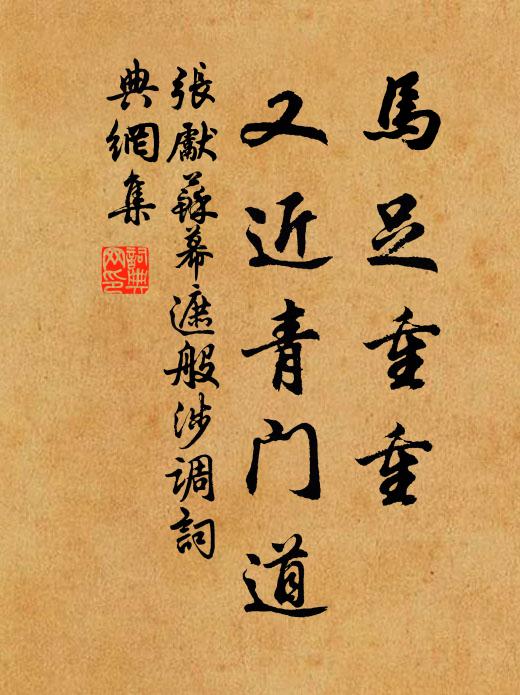 馬足重重
又近青门道
張獻蘇幕遮般涉調詞
典網集
詞典
网印